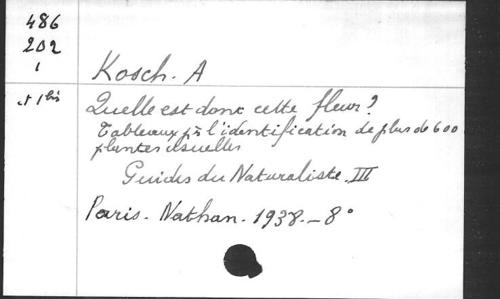 486
202
1
et 1 bis
Kosch. A
Quelle est donc cette fleur ?
Tableaux pr l'identification de plus de 600
plantes usuelles
Guides du Naturaliste. III
Paris. Nathan. 1938. - 8°